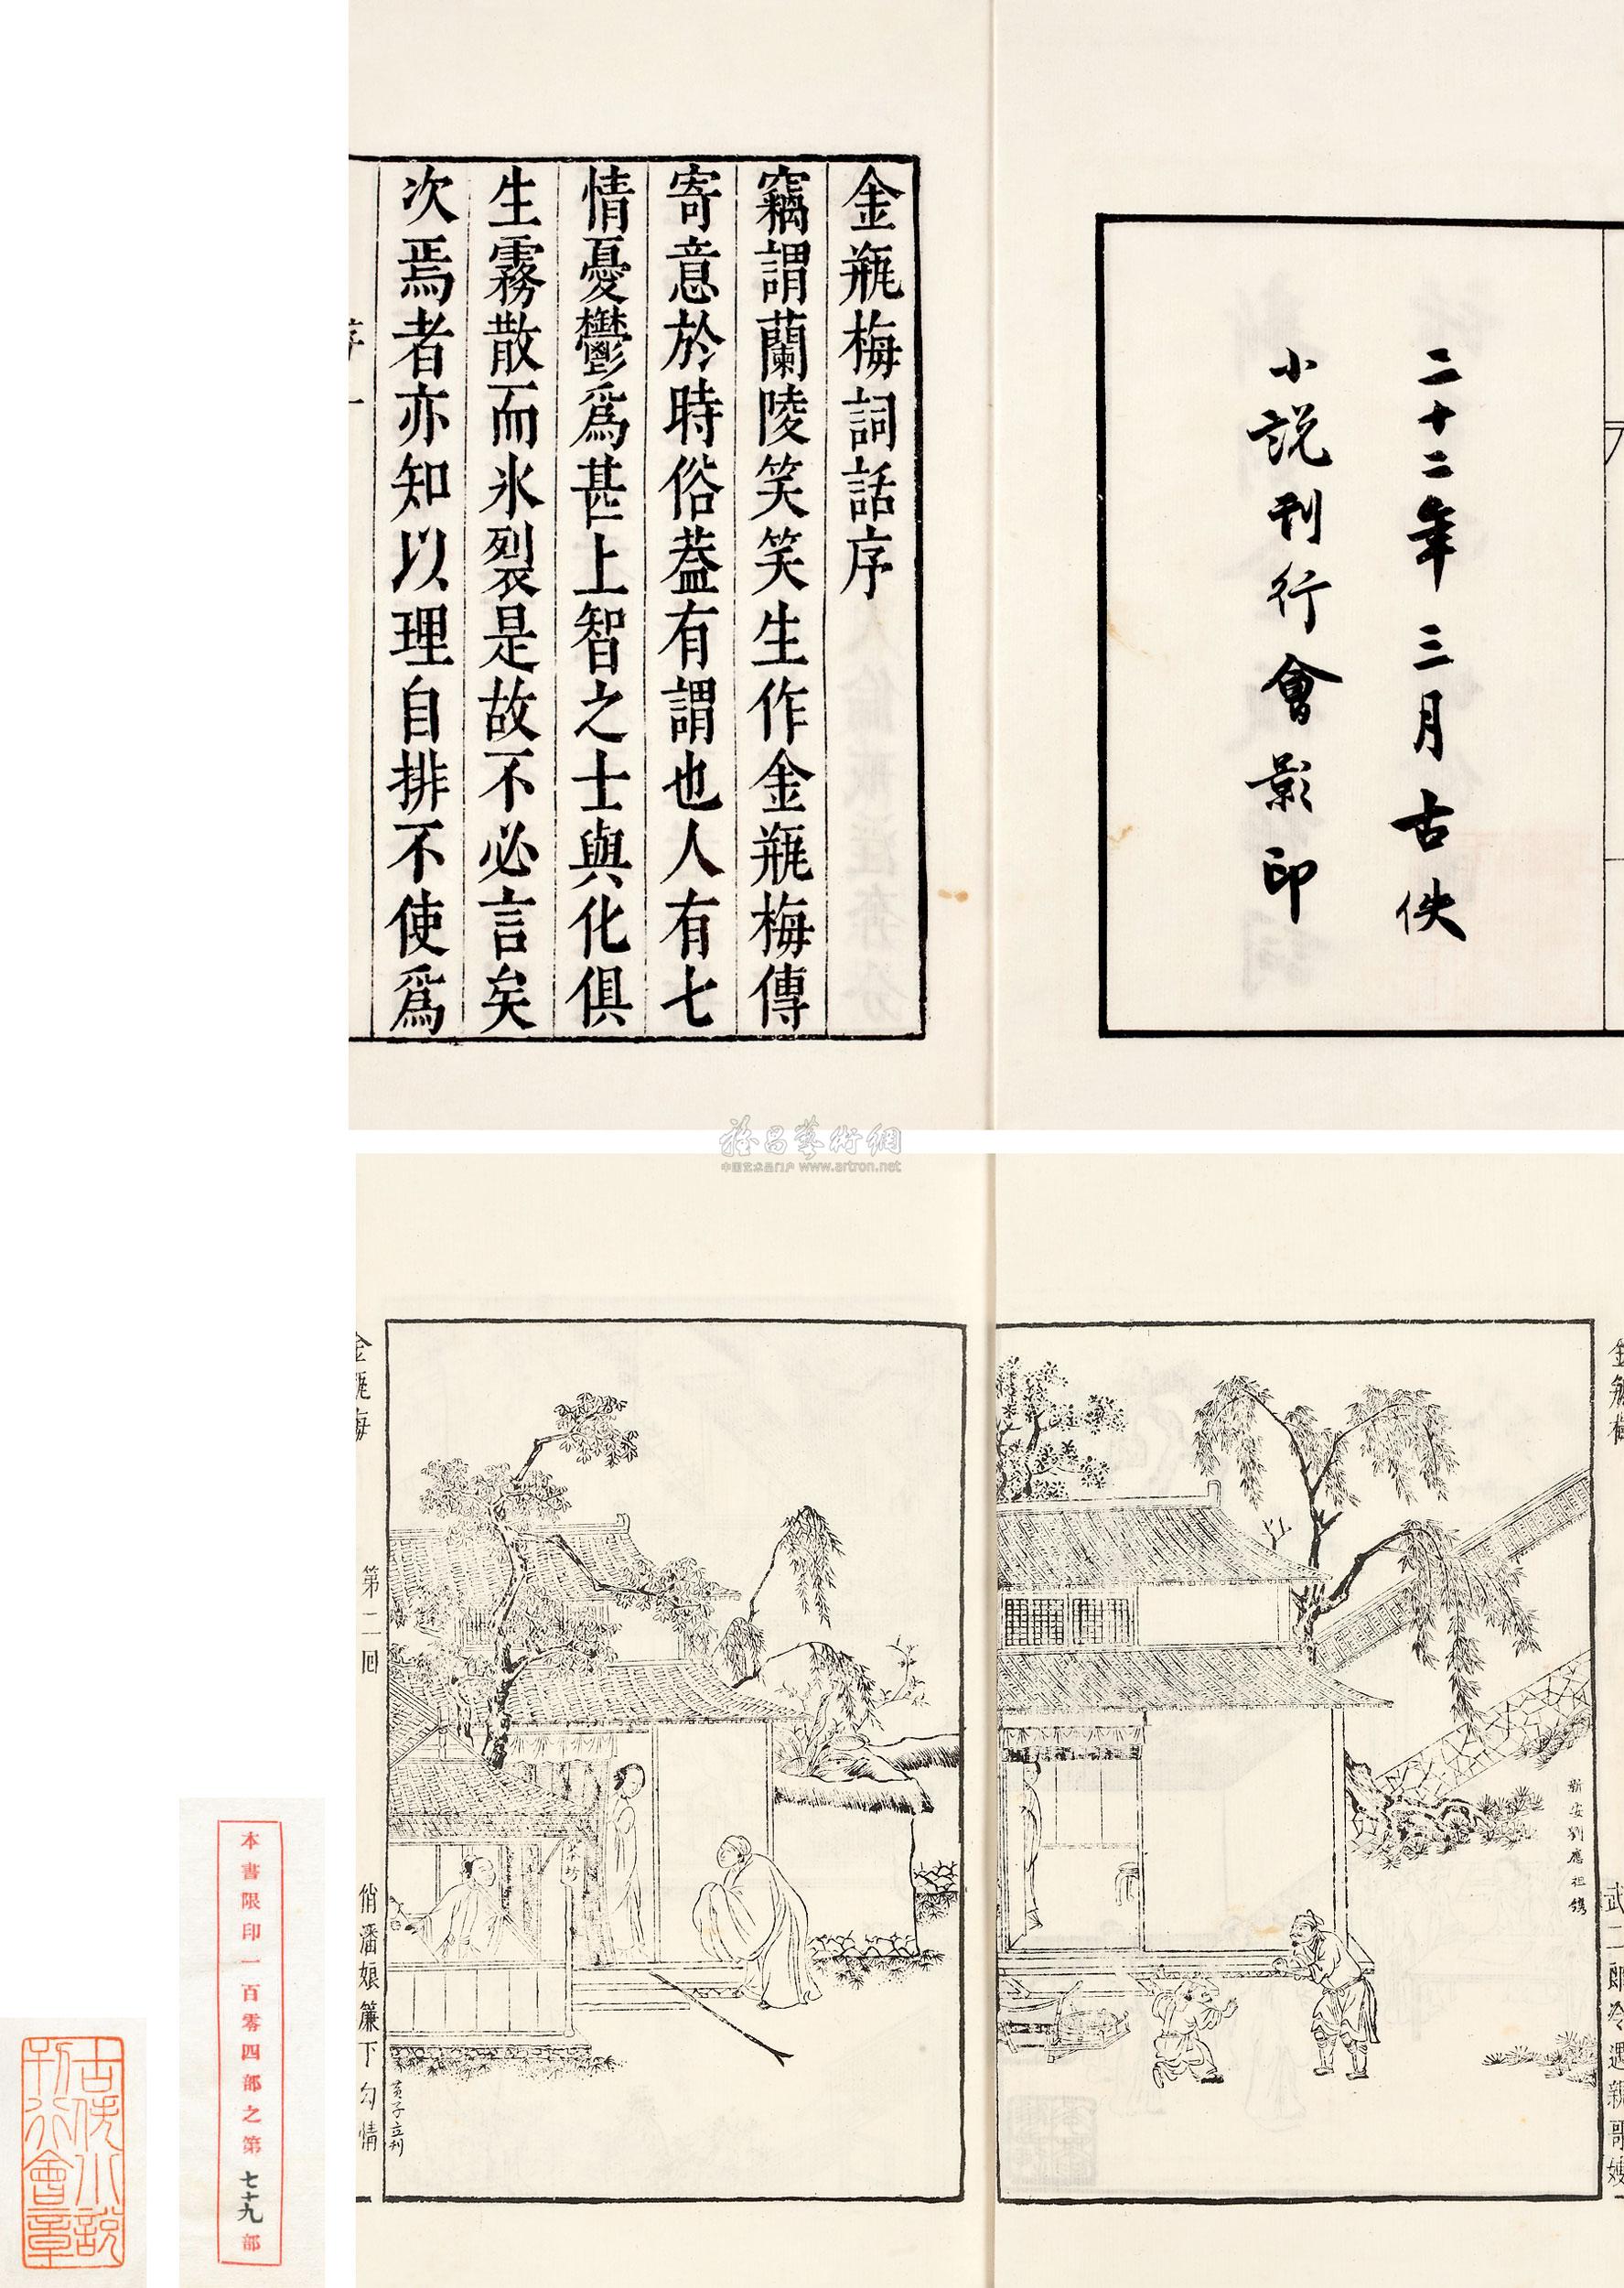 二十二年三月古佚
小說刊行會影印
金瓶梅詞話序
竊謂蘭陵笑笑生作金瓶梅傳
寄意於時俗蓋有謂也人有七
情憂鬱爲甚上智之士與化俱
生霧散而氷裂是故不必言矣
次焉者亦知以理自排不使爲
序一
雅昌藝術網
中国艺术品门户 www.artron.net
金瓶梅
武二郎冷遇親哥嫂
新安劉應祖鐫
金瓶梅
第二回
俏潘娘簾下勾情
黃子立刊
本書限印一百零四部之第七十九部
古佚小說
刊行會章